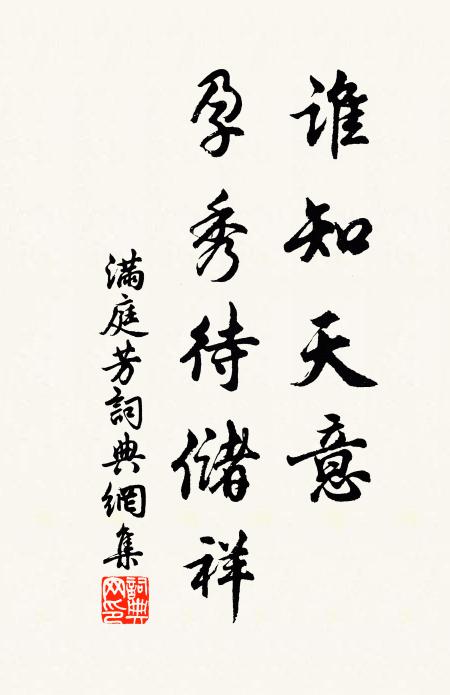 誰知天意
孕秀待儲祥
滿庭芳詞典網集
詞典網印